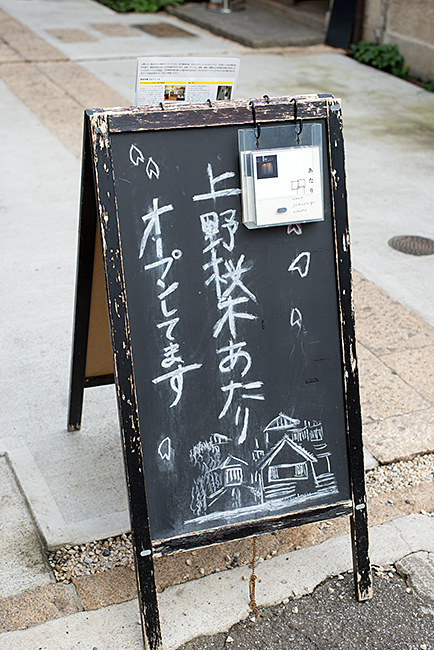 上野桜木あたり
オープンしてます
あたり